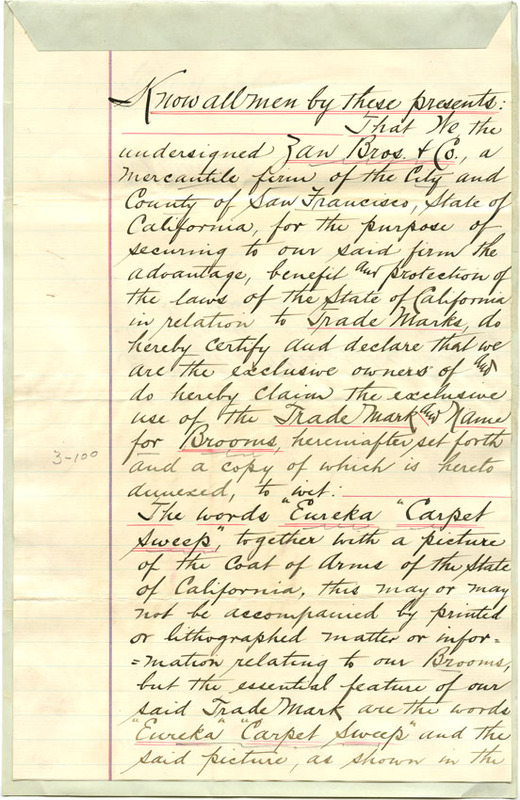 Know all men by these presents:
That We, the
undersigned Zan Bros. & Co., a
mercantile firm of the City and
County of San Francisco, State of
California, for the purpose of
securing to our said firm the
advantage, benefit and protection of
the laws of the State of California
in relation to Trade Marks, do
hereby certify and declare that we
are the exclusive owners of and
do hereby claim the exclusive
use of the Trade Mark and Name
for Brooms, hereinafter set forth
3-100
and a copy of which is hereto
annexed, to wit:
The words "Eureka" "Carpet
Sweep", together with a picture
of the Coat of Arms of the State
of California, this may or may
not be accompanied by printed
or lithographed matter or infor=
=mation relating to our Brooms,
but the essential feature of our
said Trade Mark are the words
"Eureka" "Carpet Sweep" and the
said picture, as shown in the